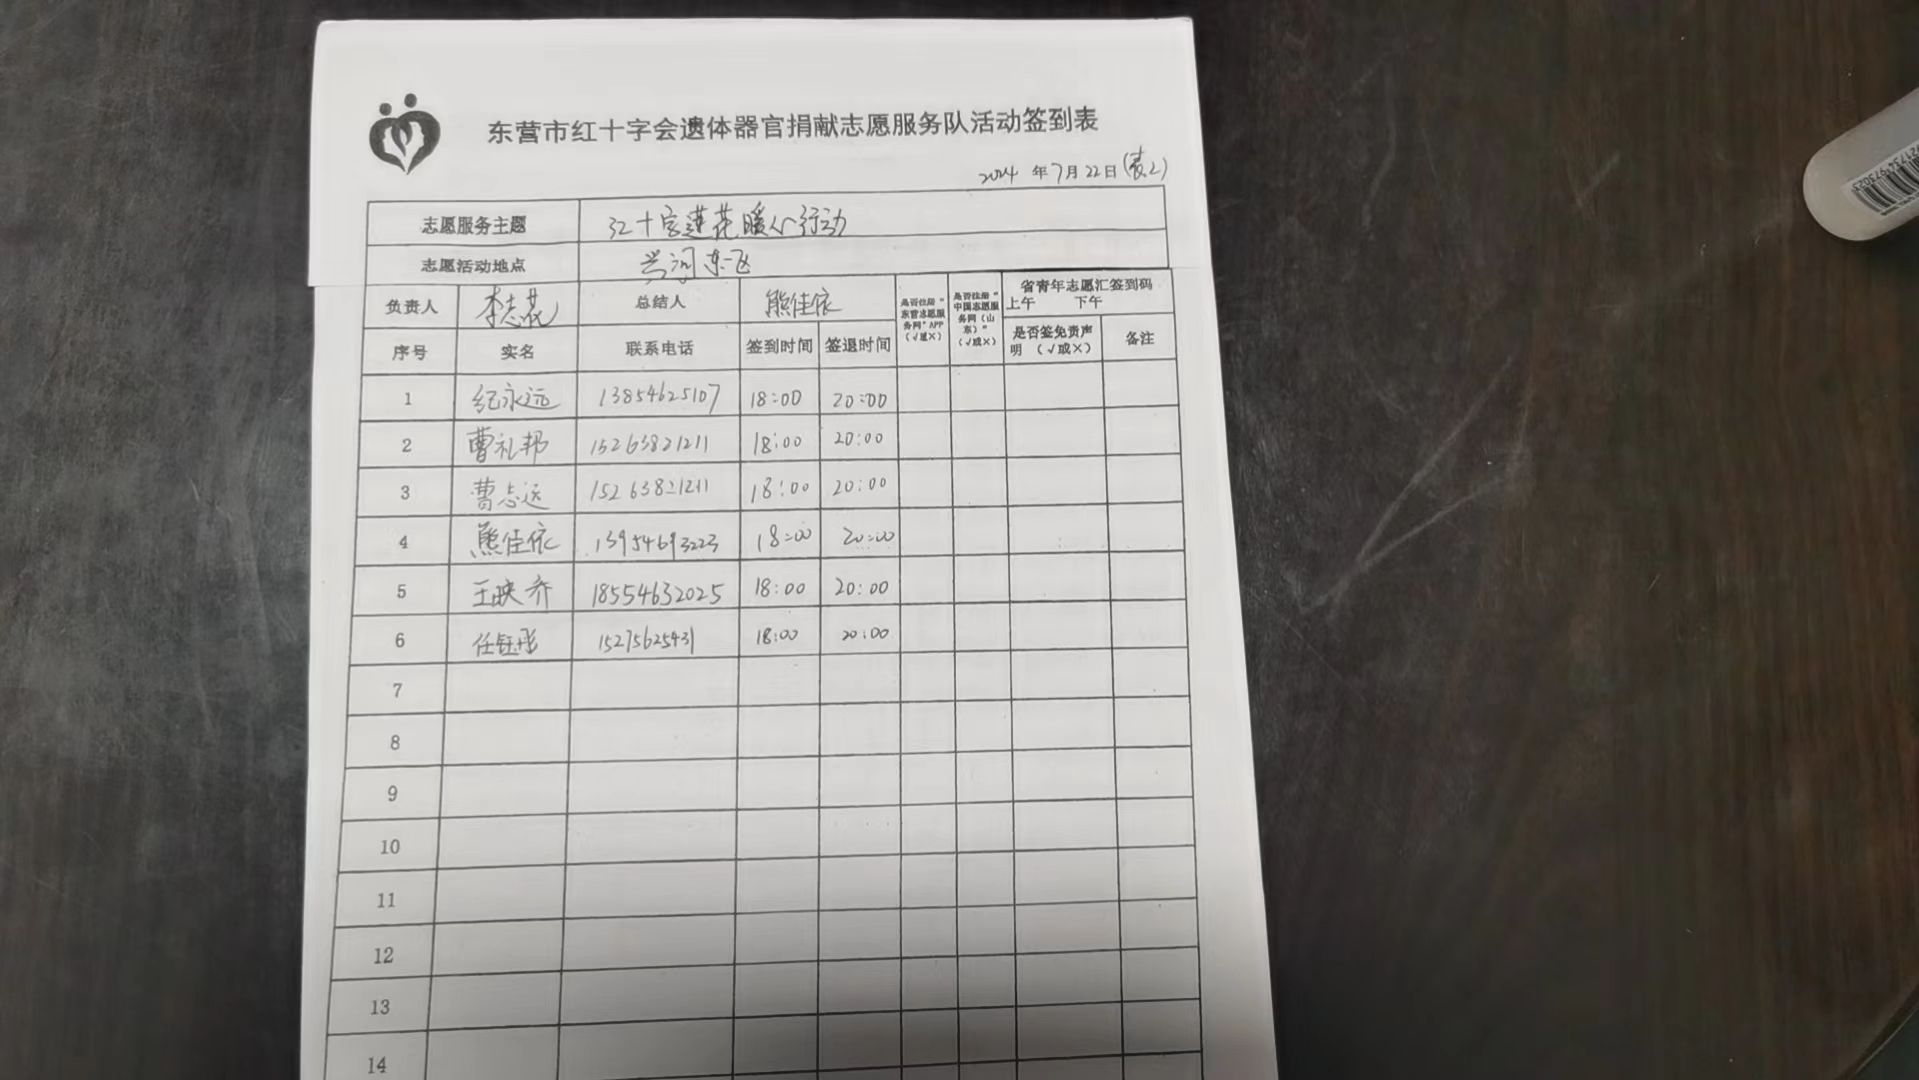 东营市红十字会遗体器官捐献志愿服务队活动签到表
2024 年7月22日(表2)
志愿服务主题 红十字莲花暖心行动
志愿活动地点
负责人 李志花 总结人 熊佳依 是否注册“东营志愿服务网”APP(√或×) 是否注册“中国志愿服务网(山东)”(√或×) 省青年志愿汇签到码 上午 下午
序号 实名 联系电话 签到时间 签退时间 是否签免责声明 (√或×) 备注
1 纪永远 13854625107 18:00 20:00
2 曹礼邦 15263821211 18:00 20:00
3 曹志远 15263821211 18:00 20:00
4 熊佳依 13954693223 18:00 20:00
5 王映乔 18554632025 18:00 20:00
6 任钰 15275625431 18:00 20:00
7
8
9
10
11
12
13
14